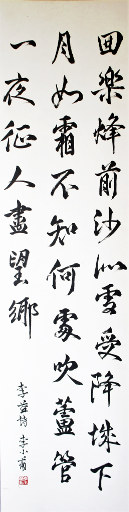 回樂烽前沙似雪受降城下
月如霜不知何處吹蘆管
一夜征人盡望鄉
李益詩 李小甫